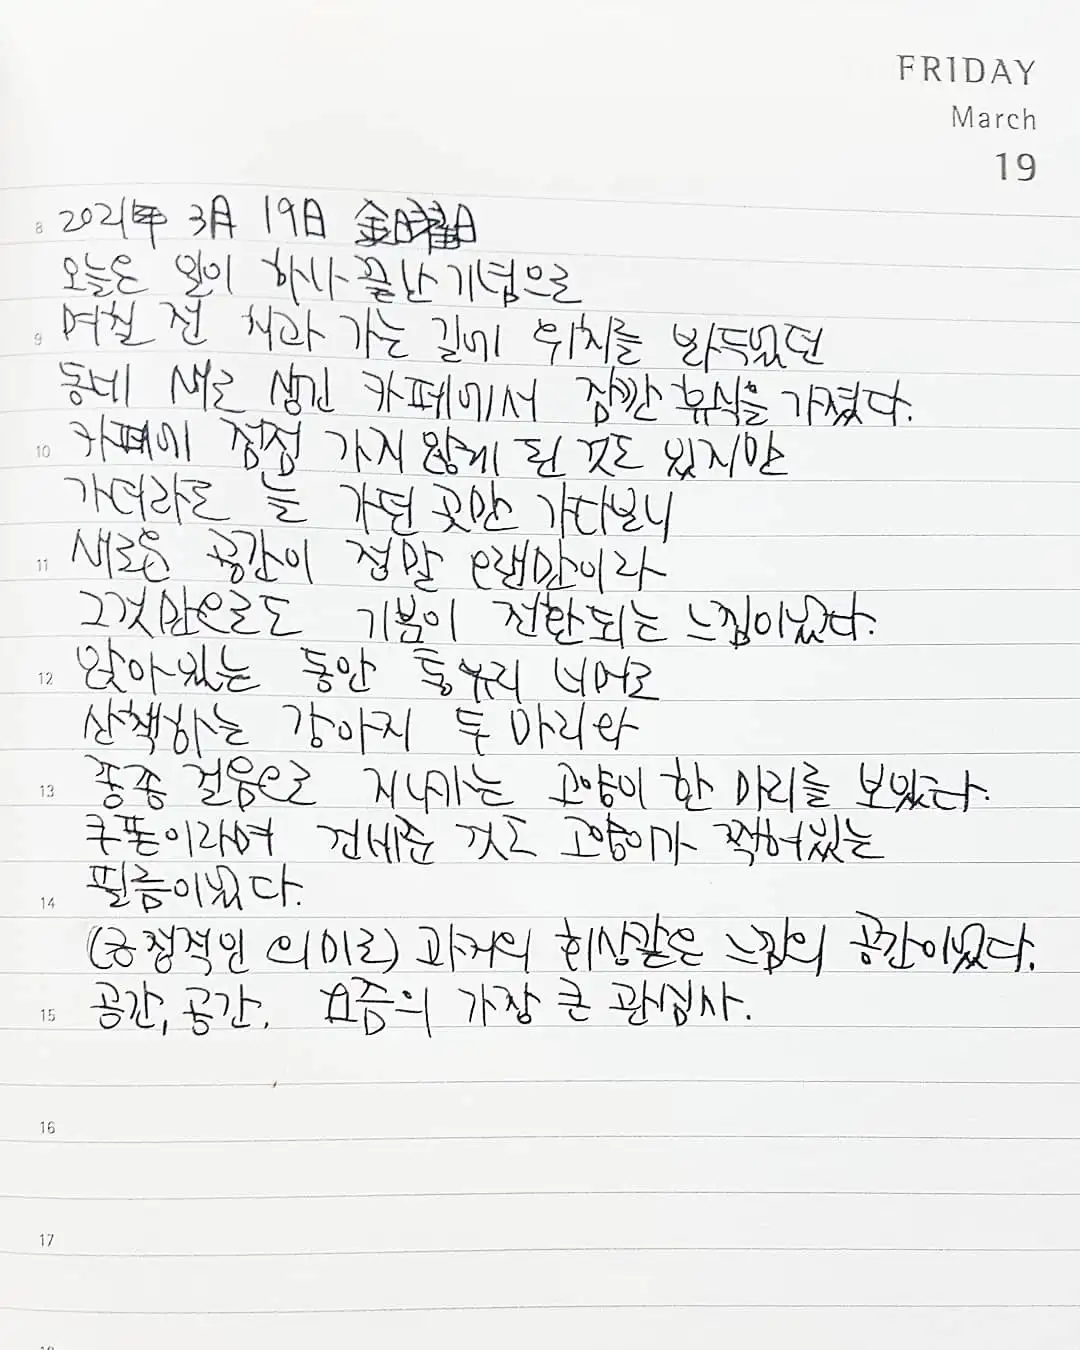 FRIDAY
March
19
8 2021年 3月 19日 金曜日
오늘은 일이 하나 끝난 기념으로
9 며칠 전 치과 가는 길에 위치를 봐두었던
동네 새로 생긴 카페에서 잠깐 휴식을 가졌다.
10 카페에 점점 가지 않게 된 것도 있지만
가더라도 늘 가던 곳만 가다보니
11 새로운 공간이 정말 오랜만이라
그것만으로도 기분이 전환되는 느낌이었다.
12 앉아있는 동안 통유리 너머로
산책하는 강아지 두 마리와
13 종종 걸음으로 지나가는 고양이 한 마리를 보았다.
쿠폰이라며 건네준 것도 고양이가 찍혀있는
14 필름이었다.
(긍정적인 의미로) 과거의 회상같은 느낌의 공간이었다.
15 공간, 공간. 요즘의 가장 큰 관심사.
16
17